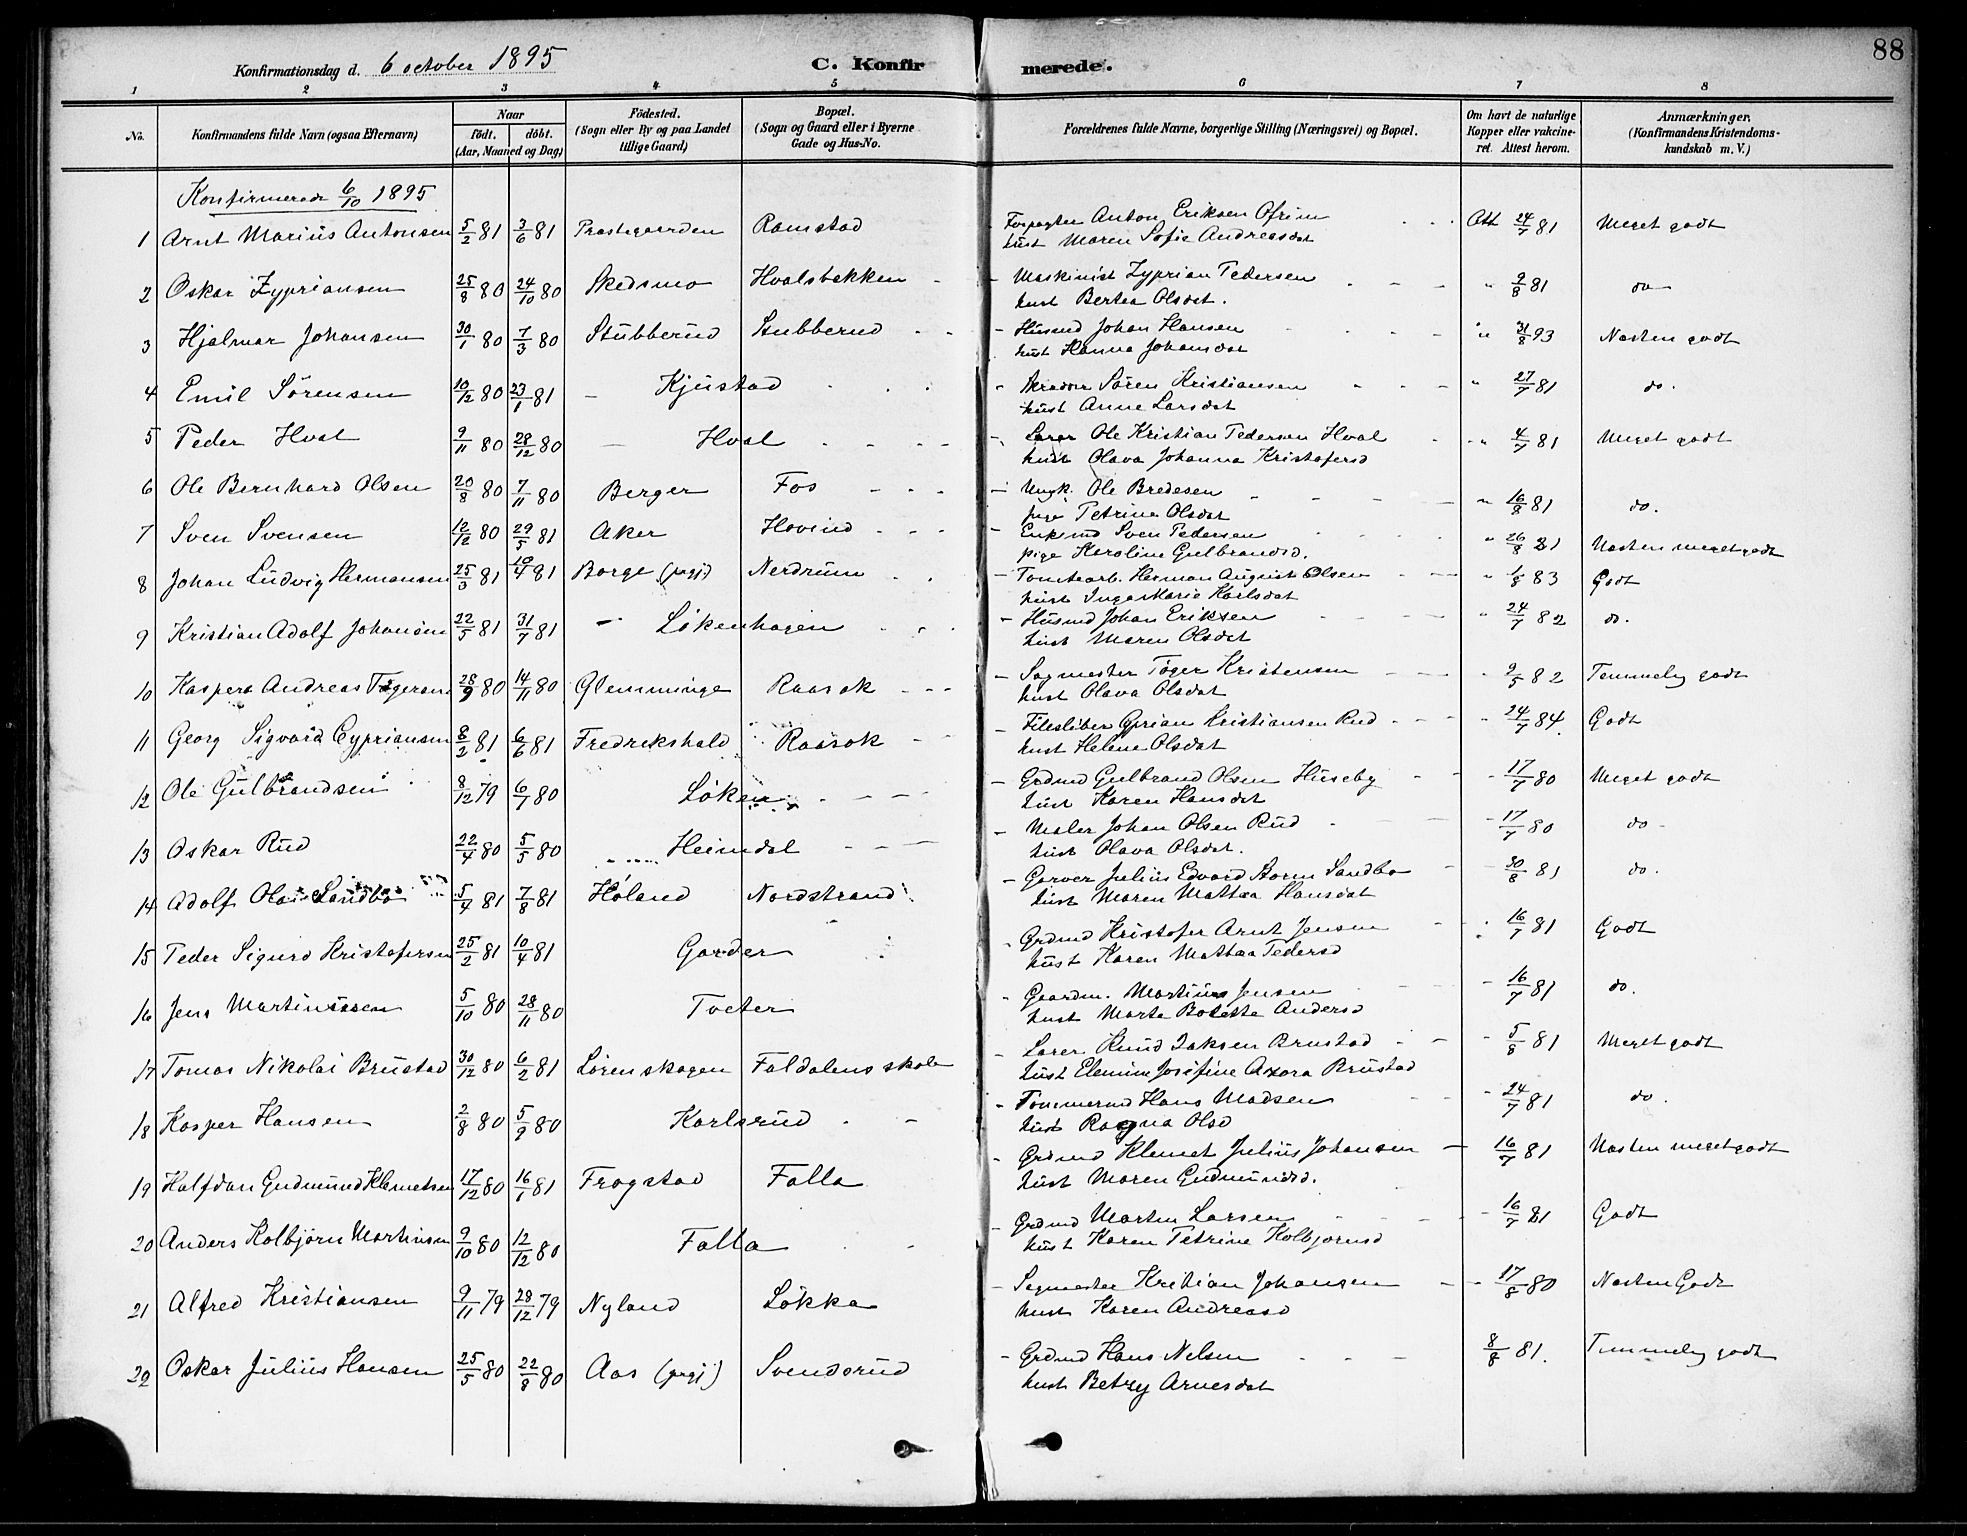 88
Konfirmationsdag d. 6 october 1895 C. Konfirmerede.
1 2 3 4 5 6 7 8
No. Konfirmandens fulde Navn (ogsaa Efternavn) Naar födt. döbt. (Aar, Maaned og Dag) Födested. (Sogn eller By og paa Landet tillige Gaard) Bopæl. (Sogn og Gaard eller i Byerne Gade og Hus-No. Forældrenes fulde Navne, borgerlige Stilling (Næringsvei) og Bopæl. Om havt de naturlige Kopper eller vakcineret. Attest herom. Anmærkninger. (Konfirmandens Kristendomskundskab m. V.)
Konfirmerede 6/10 1895
1 Arnt Marius Antonsen 5/2 81 3/6 81 Præstegaarden Ramstad Forpagter Anton Eriksen Ofrim Att 24/7 81 Meget godt
hust Maren Sofie Andreasdat
2 Oskar Zypriansen 25/8 80 24/10 80 Skedsmo Hvalsbakken - Maskinist Zyprian Pedersen " 2/8 81 do
hust Bertea Olsdat.
3 Hjalmar Johansen 30/1 80 7/3 80 Stubberud Stubberud - Husmd Johan Hansen " 31/8 93 Næsten godt
hust Hanna Johansdat
4 Emil Sörensen 10/12 80 23/1 81 - Kjustad " Skrædder Sören Kristiansen " 27/7 81 do.
hust Anne Larsdat
5 Peder Hval 9/11 80 28/12 80 - Hval - Lærer Ole Kristian Pedersen Hval " 4/7 81 Meget godt
hust Olava Johanna Kristofersd
6 Ole Bernhard Olsen 20/8 80 7/11 80 Berger Fos - Ungk. Ole Bredesen " 16/8 81 do.
pige Petrine Olsdat
7 Sven Svensen 12/12 80 29/5 81 Aker Hovind - Enkemd Sven Pedersen " 26/8 81 Næsten meget godt
pige Karoline Gulbrandsd.
8 Johan Ludvig Hermansen 25/3 81 18/4 81 Borge (prgj) Nerdrum - Tomtearb. Herman August Olsen " 1/8 83 Godt
hust Inga Marie Karlsdat
9 Kristian Adolf Johansen 22/5 81 31/7 81 - Lökenhagen - Husmd Johan Eriksen " 24/7 82 do.
hust Maren Olsdat
10 Kaspera Andreas Tögersen 28/9 80 14/11 80 Glemminge Raasok - Sagmester Töger Kristensen " 2/5 82 Temmelig godt
hust Olava Olsdat
11 Georg Sigvard Cypriansen 8/2 81 6/6 81 Fredrikshald Raasok - Filesliber Cyprian Kristiansen Rud " 24/7 84. Godt
hust Helene Olsdat
12 Ole Gulbrandsen 8/12 79 6/7 80 Löken - Grdmd Gulbrand Olsen Huseby - 17/7 80 Meget godt
hust Karen Hansdat
13 Oskar Rud 22/4 80 5/5 80 Heimdal - Maler Johan Olsen Rud - 17/7 80 do -
hust Olava Olsdat.
14 Adolf Olai Sandbo 5/4 81 7/8 81 Höland Nordstrand - Garver Julius Edvard Storm Sandbo - 30/8 81 do.
hust Maren Mathea Hansdat
15 Peder Sigurd Kristofersen 25/2 81 10/4 81 Garder - Grdmd Kristofer Arnt Jensen " 16/7 81 Godt
hust Karen Mathea Pedersd
16 Jens Martinissen 5/10 80 28/11 80 Tveter - Gaardm. Martinius Jensen - 16/7 81 do.
hust Marte Bolette Andersd
17 Tomas Nikolai Brustad 30/12 80 6/2 81 Lörenskogen Faldalens skole - Lærer Knud Isaksen Brustad - 5/8 81 Meget godt
hust Elemine Josifine Axora Brustad
18 Kasper Hansen 2/8 80 5/9 80 Karlsrud - Tömmermd Hans Madsen - 24/7 81 do.
hust Ragna Olsd
19 Halfdan Gudmund Klemetsen 17/12 80 16/1 81 Frogstad Falla - Grdmd Klemet Julius Johansen - 16/7 81 Næsten meget godt
hust Maren Gudmundsd.
20 Anders Kolbjörn Martinsen 9/10 80 12/12 80 Falla - Grdmd Martin Larsen - 16/7 81 Godt
hust Karen Petrine Kolbjornsd
21 Alfred Kristiansen 9/11 79 28/12 79 Nyland Lökka - Sagmester Kristian Johansen - 17/8 80 Næsten Godt
hust Karen Andreasd
22 Oskar Julius Hansen 25/5 80 22/8 80 Aas (prgj) Svendsrud - Grdmd Hans Nelsen 8/8 81. Temmelig godt
hust Betzy Arnesdat